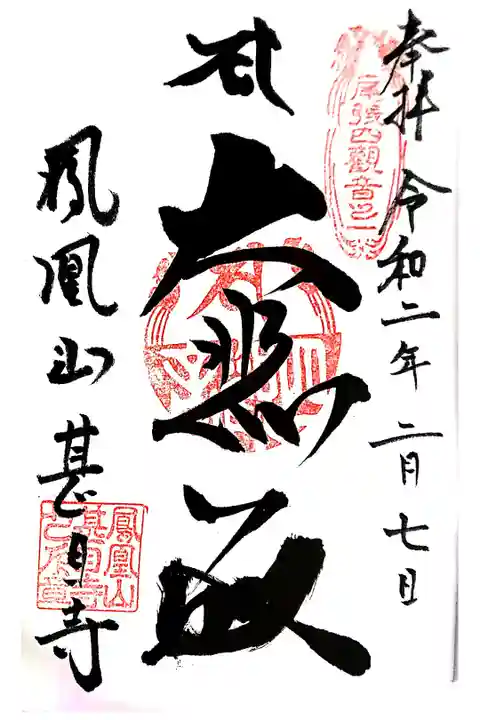 奉拝 令和二年二月七日
尾張四観音之一
大悲殿
鳳凰山 甚目寺
鳳凰山
甚目寺